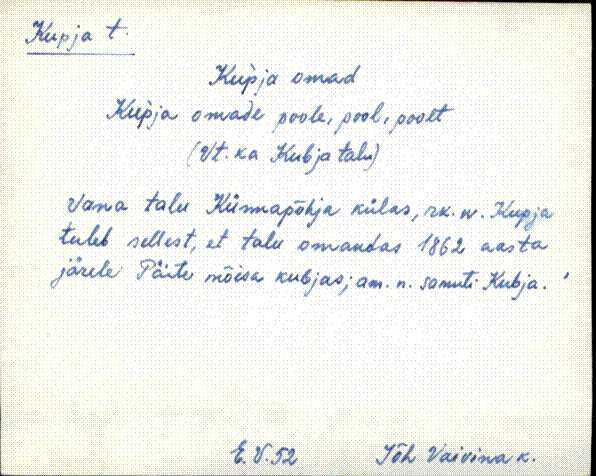 Kupja t.
Kup̀ja omad
Kup̀ja omade poole, pool, poolt
(Vt. ka Kubja talu)
Vana talu Künnapõhja külas, rk. n. Kupja
tuleb sellest, et talu omandas 1862 aasta
järele Päite mõisa kubjas; am. n. samuti Kubja.
E.V. 52
Jõh Vaivina k.